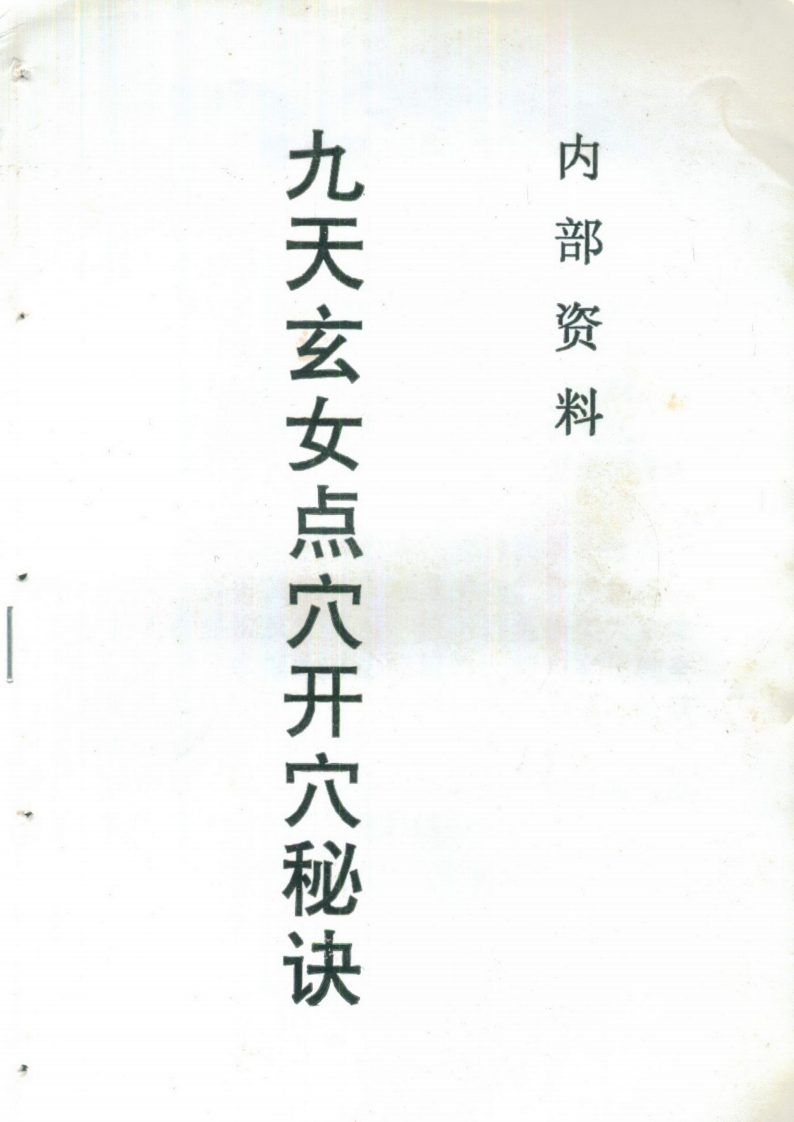 内部资料
九天玄女点穴开穴秘诀